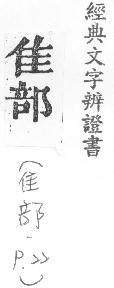 經典文字辨證書
隹部
(隹部·P.22)